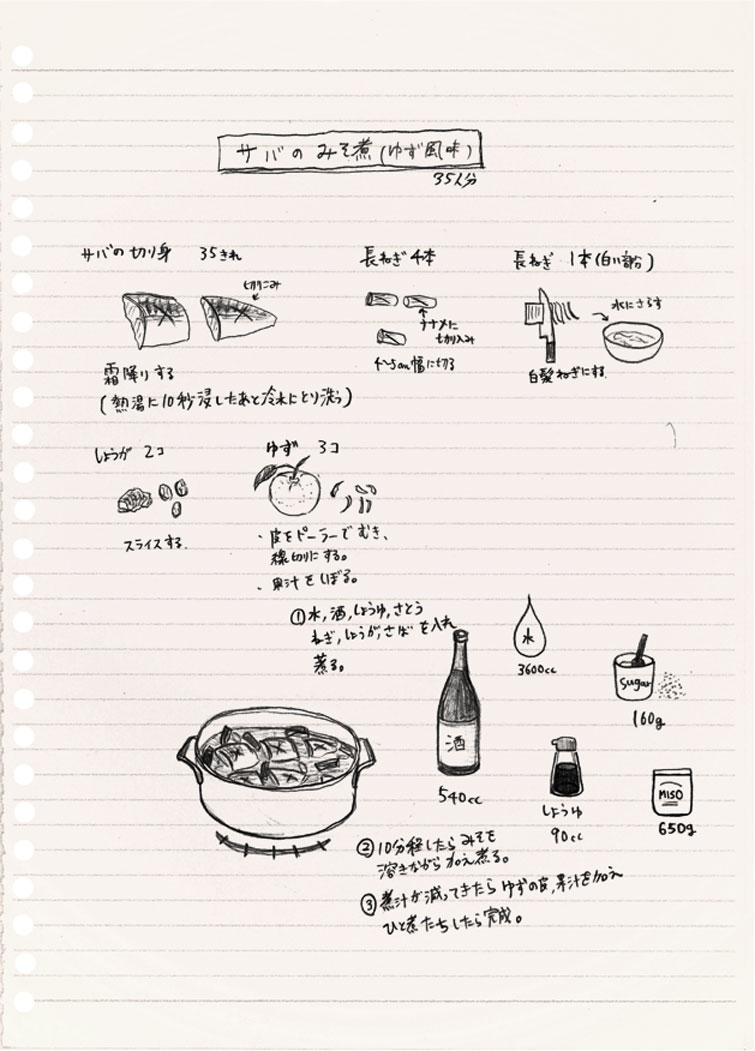 サバの みそ煮(ゆず風味)
35人分
サバの切り身 35きれ
切りこみ
霜降りする
(熱湯に10秒浸したあと冷水にとり洗う)
長ねぎ 4本
ナナメに
切り込み
4~5cm幅に切る
長ねぎ 1本(白い部分)
水にさらす
白髪ねぎにする.
しょうが 2コ
スライスする.
ゆず 3コ
・皮をピーラーでむき、
線切りにする。
・果汁をしぼる。
①水,酒,しょうゆ,さとう
ねぎ,しょうが,さばを入れ
煮る。
水
3600cc
sugar
160g
酒
540cc
しょうゆ
90cc
MISO
650g
②10分経したらみそを
溶きながら加え煮る。
③煮汁が減ってきたらゆずの皮,果汁を加え
ひと煮たちしたら完成。